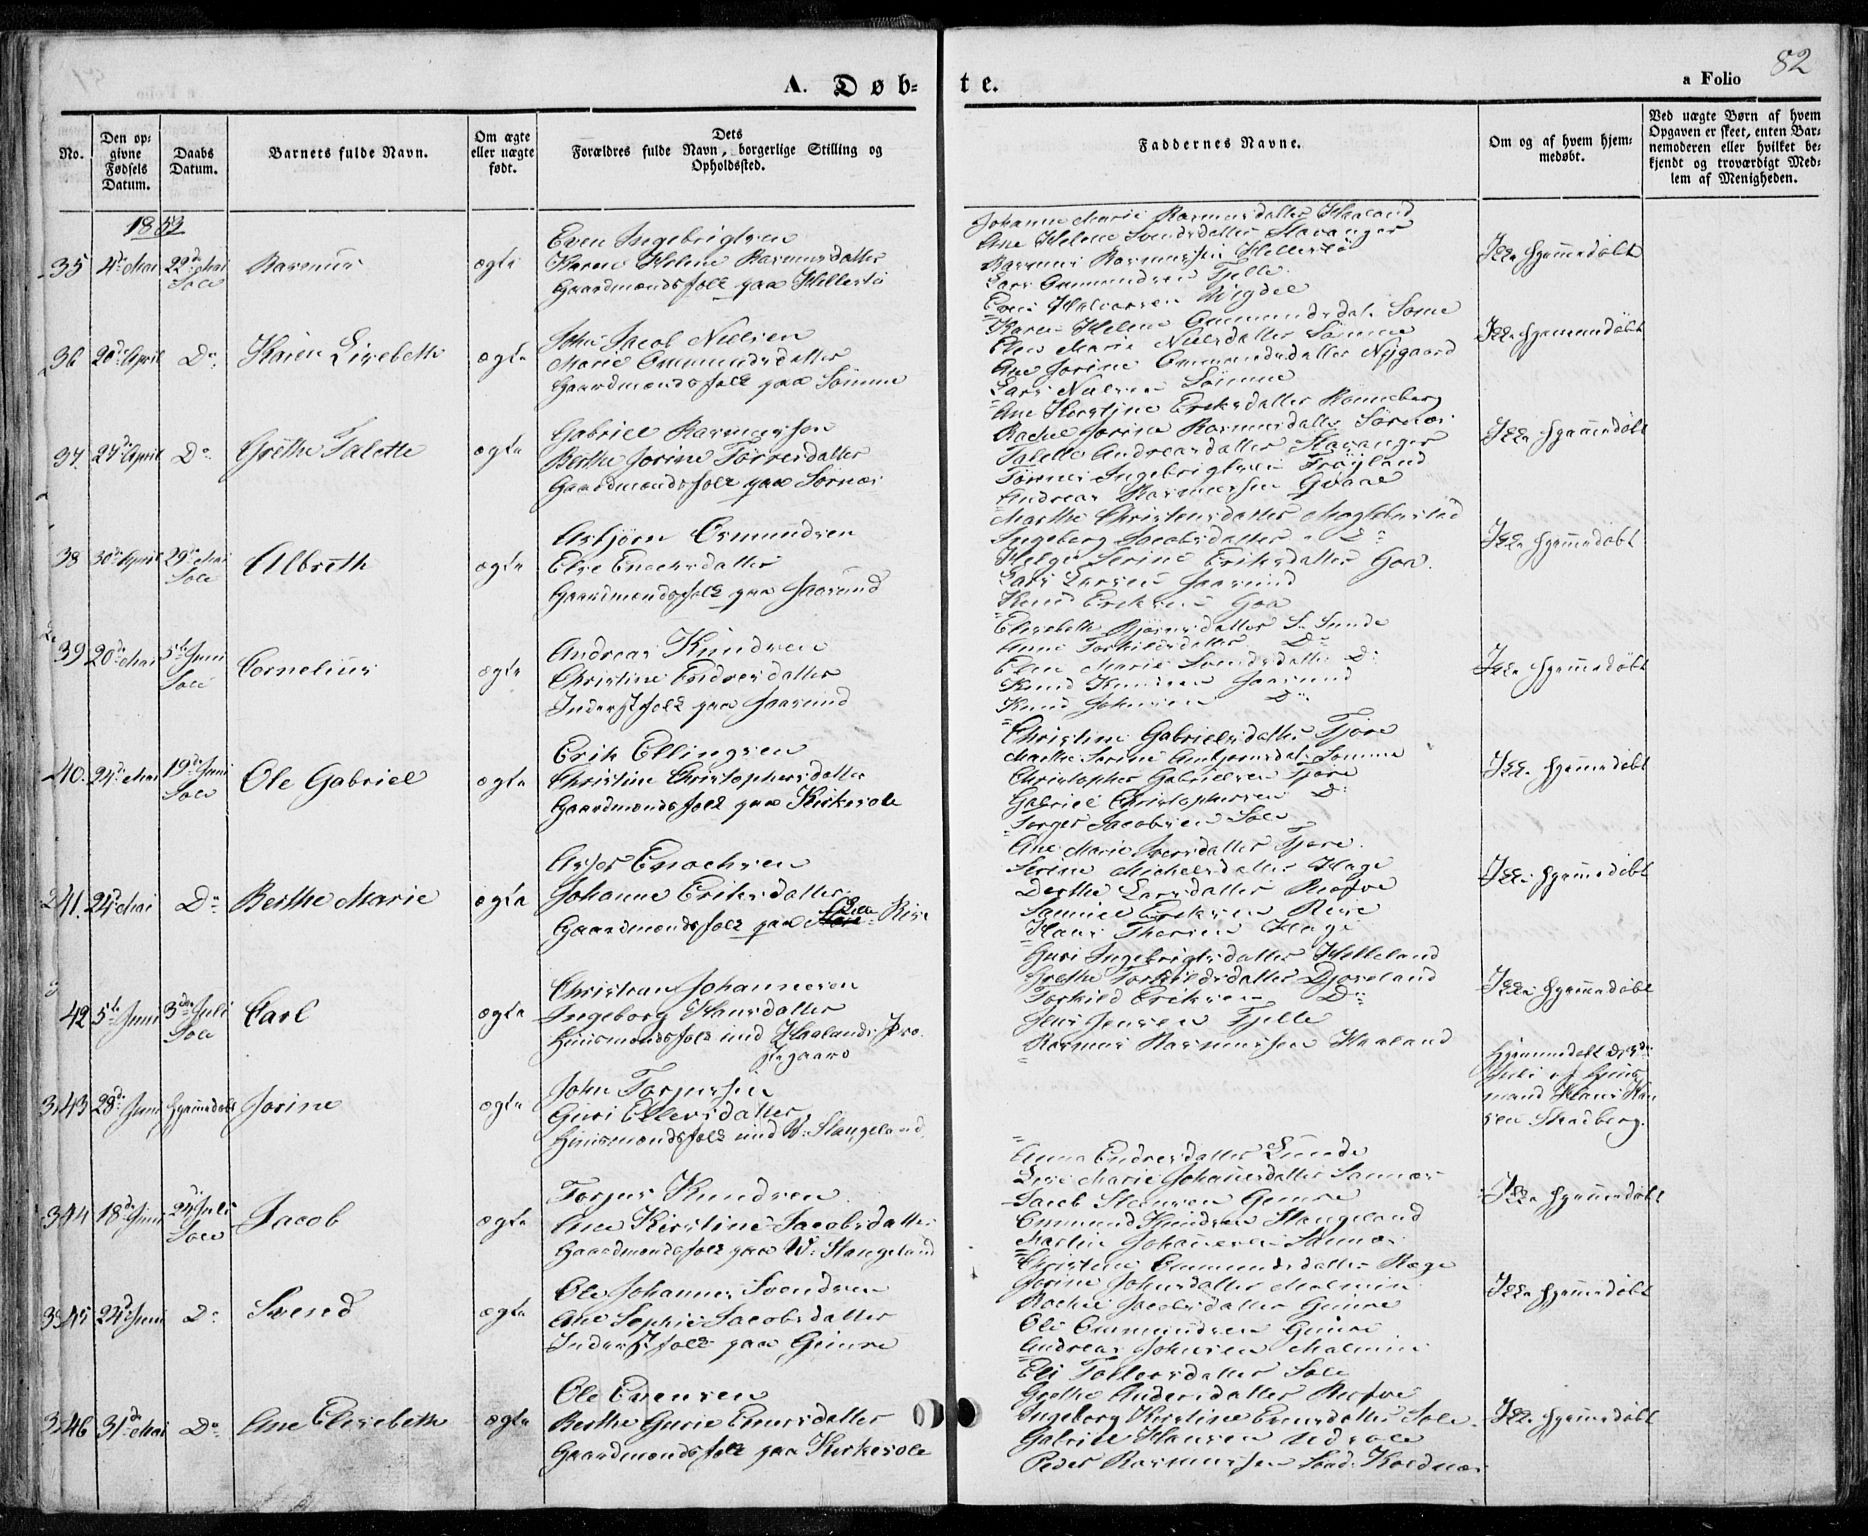 82
A. Døb-
te.
a Folio
No.
Den op-
givne
Fødsels
Datum.
Daabs
Datum.
Barnets fulde Navn.
Om ægte
eller uægte
født.
Dets
Forældres fulde Navn, borgerlige Stilling og
Opholdssted.
Faddernes Navne.
Om og af hvem hjem-
medøbt.
Ved uægte Børn af hvem
Opgaven er skeet, enten Bar-
nemoderen eller hvilket be-
kjendt og troværdigt Med-
lem af Menigheden.
1853
35 4de Mai 22de Mai Sole Rasmus ægte
Even Ingebrigtsen
Karen Helene Rasmusdatter
Gaardmandsfolk paa Hellestø
Johanne Marie Rasmusdatter Haaland
Ane Helene Svendsdatter Stavanger
Rasmus Rasmussen Hellestø
Lars Ommundsen Tjelle
Even Halvorsen Vigdel
Ikke hjemmedøbt
36 20de April Do Karen Lisebeth ægte
John Jacob Nielsen
Marie Ommundsdatter
Gaardmandsfolk paa Sømme
Karen Helene Ommundsdat. Some
Elen Marie Nielsdatter Sømme
Ane Jorine Ommundsdatter Nygaard
Lars Nielsen Sømme
Ikke hjemmedøbt
37. 27de April Do Grethe Talette ægte
Gabriel Rasmussen
Berthe Jorine Tørresdatter
Gaardmandsfolk paa Sørnæs
Ane Kirstine Eriksdatter Rønneberg
Rachel Jorine Rasmusdatter Sørnæs
Talette Andreasdatter Stavanger
Tønnes Ingebrigtsen Frøyland
Andreas Rasmussen Gvaale
Ikke hjemmedøbt
38 30de April 29de Mai Sole Albreth ægte
Asbjørn Osmundsen
Else Enochsdatter
Gaardmandsfolk paa Jaasund
Marthe Christensdatter Maglebustad
Ingeborg Jacobsdatter Do
Helge Serine Eriksdatter Goa
Lars Larsen Jaasund
Knud Eriksen Goa
Ikke hjemmedøbt
39 20de Mai 5te Juni Sole Cornelius ægte
Andreas Knudsen
Christine Endresdatter
Inderstfolk paa Jaasund
Elisebeth Bjørnsdatter S. Sunde
Anne Torkildsdatter Do
Elen Marie Svendsdatter Do
Knud Knudsen Jaasund
Knud Johnsen Do
Ikke hjemmedøbt
40. 24de Mai 19de Juni Sole Ole Gabriel ægte
Erik Ellingsen
Christine Christophersdatter
Gaardmandsfolk paa Kirkesole
Christine Gabrielsdatter Tjøre
Marthe Serine Asbjørnsdat. Sømme
Christopher Gabrielsen Tjøre
Gabriel Christophersen Do
Torger Jacobsen Sole
Ikke hjemmedøbt
41. 24de Mai Do Berthe Marie ægte
Asser Enochsen
Johanne Eriksdatter
Gaardmandsfolk paa Lille Risø
Ane Marie Iversdatter Tjøre
Serine Michelsdatter Hage
Dorthe Larsdatter Røsve
Samuel Eriksen Risø
Hans Thorsen Hage
Ikke hjemmedøbt
42 5te Juni 3de Juli Sole Carl ægte
Christian Johannesen
Ingeborg Hansdatter
Huusmandsfolk und. Haalands Præ-
stegaard
Guri Ingebrigtsdatter Helleland
Grethe Torkildsdatter Djøseland
Torkild Eriksen Do
Jens Jensen Tjelle
Rasmus Rasmussen Haaland
Ikke hjemmedøbt
43 28de Juni hjemmedøbt Jorine ægte
John Torjussen
Guri Ellevsdatter
Huusmandsfolk und. V. Stangeland
Hjemmedøbt d. 3de
Juli af Huus-
mand Hans Han-
sen Skadberg.
44 18de Juni 24de Juli Sole Jacob ægte
Torjus Knudsen
Ane Kirstine Jacobsdatter
Gaardmandsfolk paa V. Stangeland
Anna Endresdatter Sunde
Lise Marie Johannesdatter Sannæs
Jacob Steensen Gimre
Ommund Knudsen Stangeland
Martin Johannesen Sannæs
Ikke hjemmedøbt
45 22de Juni Do Svend ægte
Ole Johannes Svendsen
Ane Sophie Jacobsdatter
Inderstfolk paa Gimre
Christine Ommundsdatter Ræge
Jorine Johnsdatter Malmin
Rachel Jacobsdatter Gimre
Ole Ommundsen Gimre
Andreas Johnsen Malmin
Ikke hjemmedøbt
46 31de Mai Do Ane Elisebeth ægte
Ole Evensen
Berthe Gurie Enersdatter
Gaardmandsfolk paa Kirkesole
Eli Tollersdatter Sole
Grethe Andersdatter Røsve
Ingeborg Kirstine Evensdatter Sole
Gabriel Hansen Udsole
Peder Rasmussen Sand. Koldnæs
Ikke hjemmedøbt